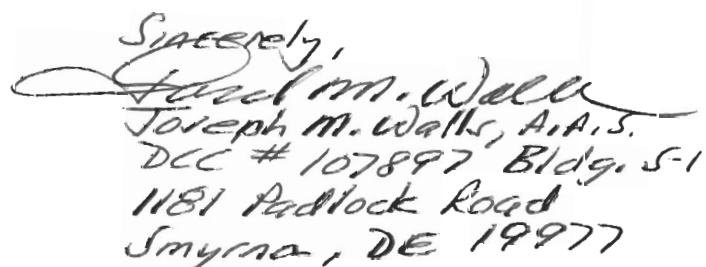 Sincerely,
Joseph M. Walls
Joseph M. Walls, A.A.S.
DCC # 107897 Bldg. S-1
1181 Paddock Road
Smyrna, DE 19977